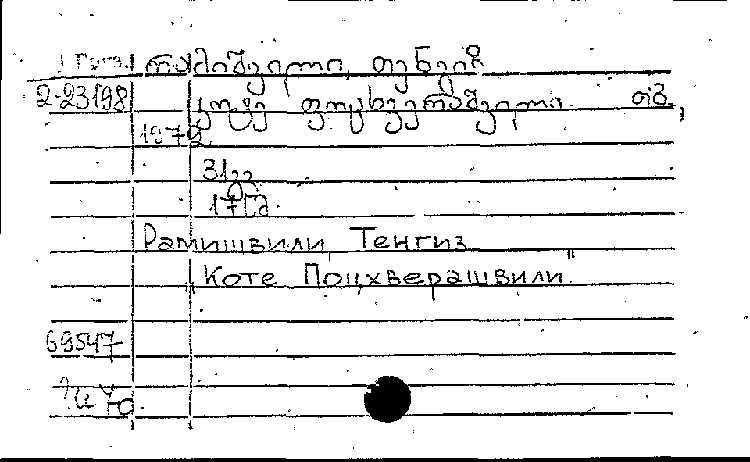 რამიშვილი, თენგიზ
2-23198 კოტე ფოცხვერაშვილი თბ.,
1972
31გვ
17სმ.
Рамишвили, Тенгиз
"Коте Поцхверашвили"
69547